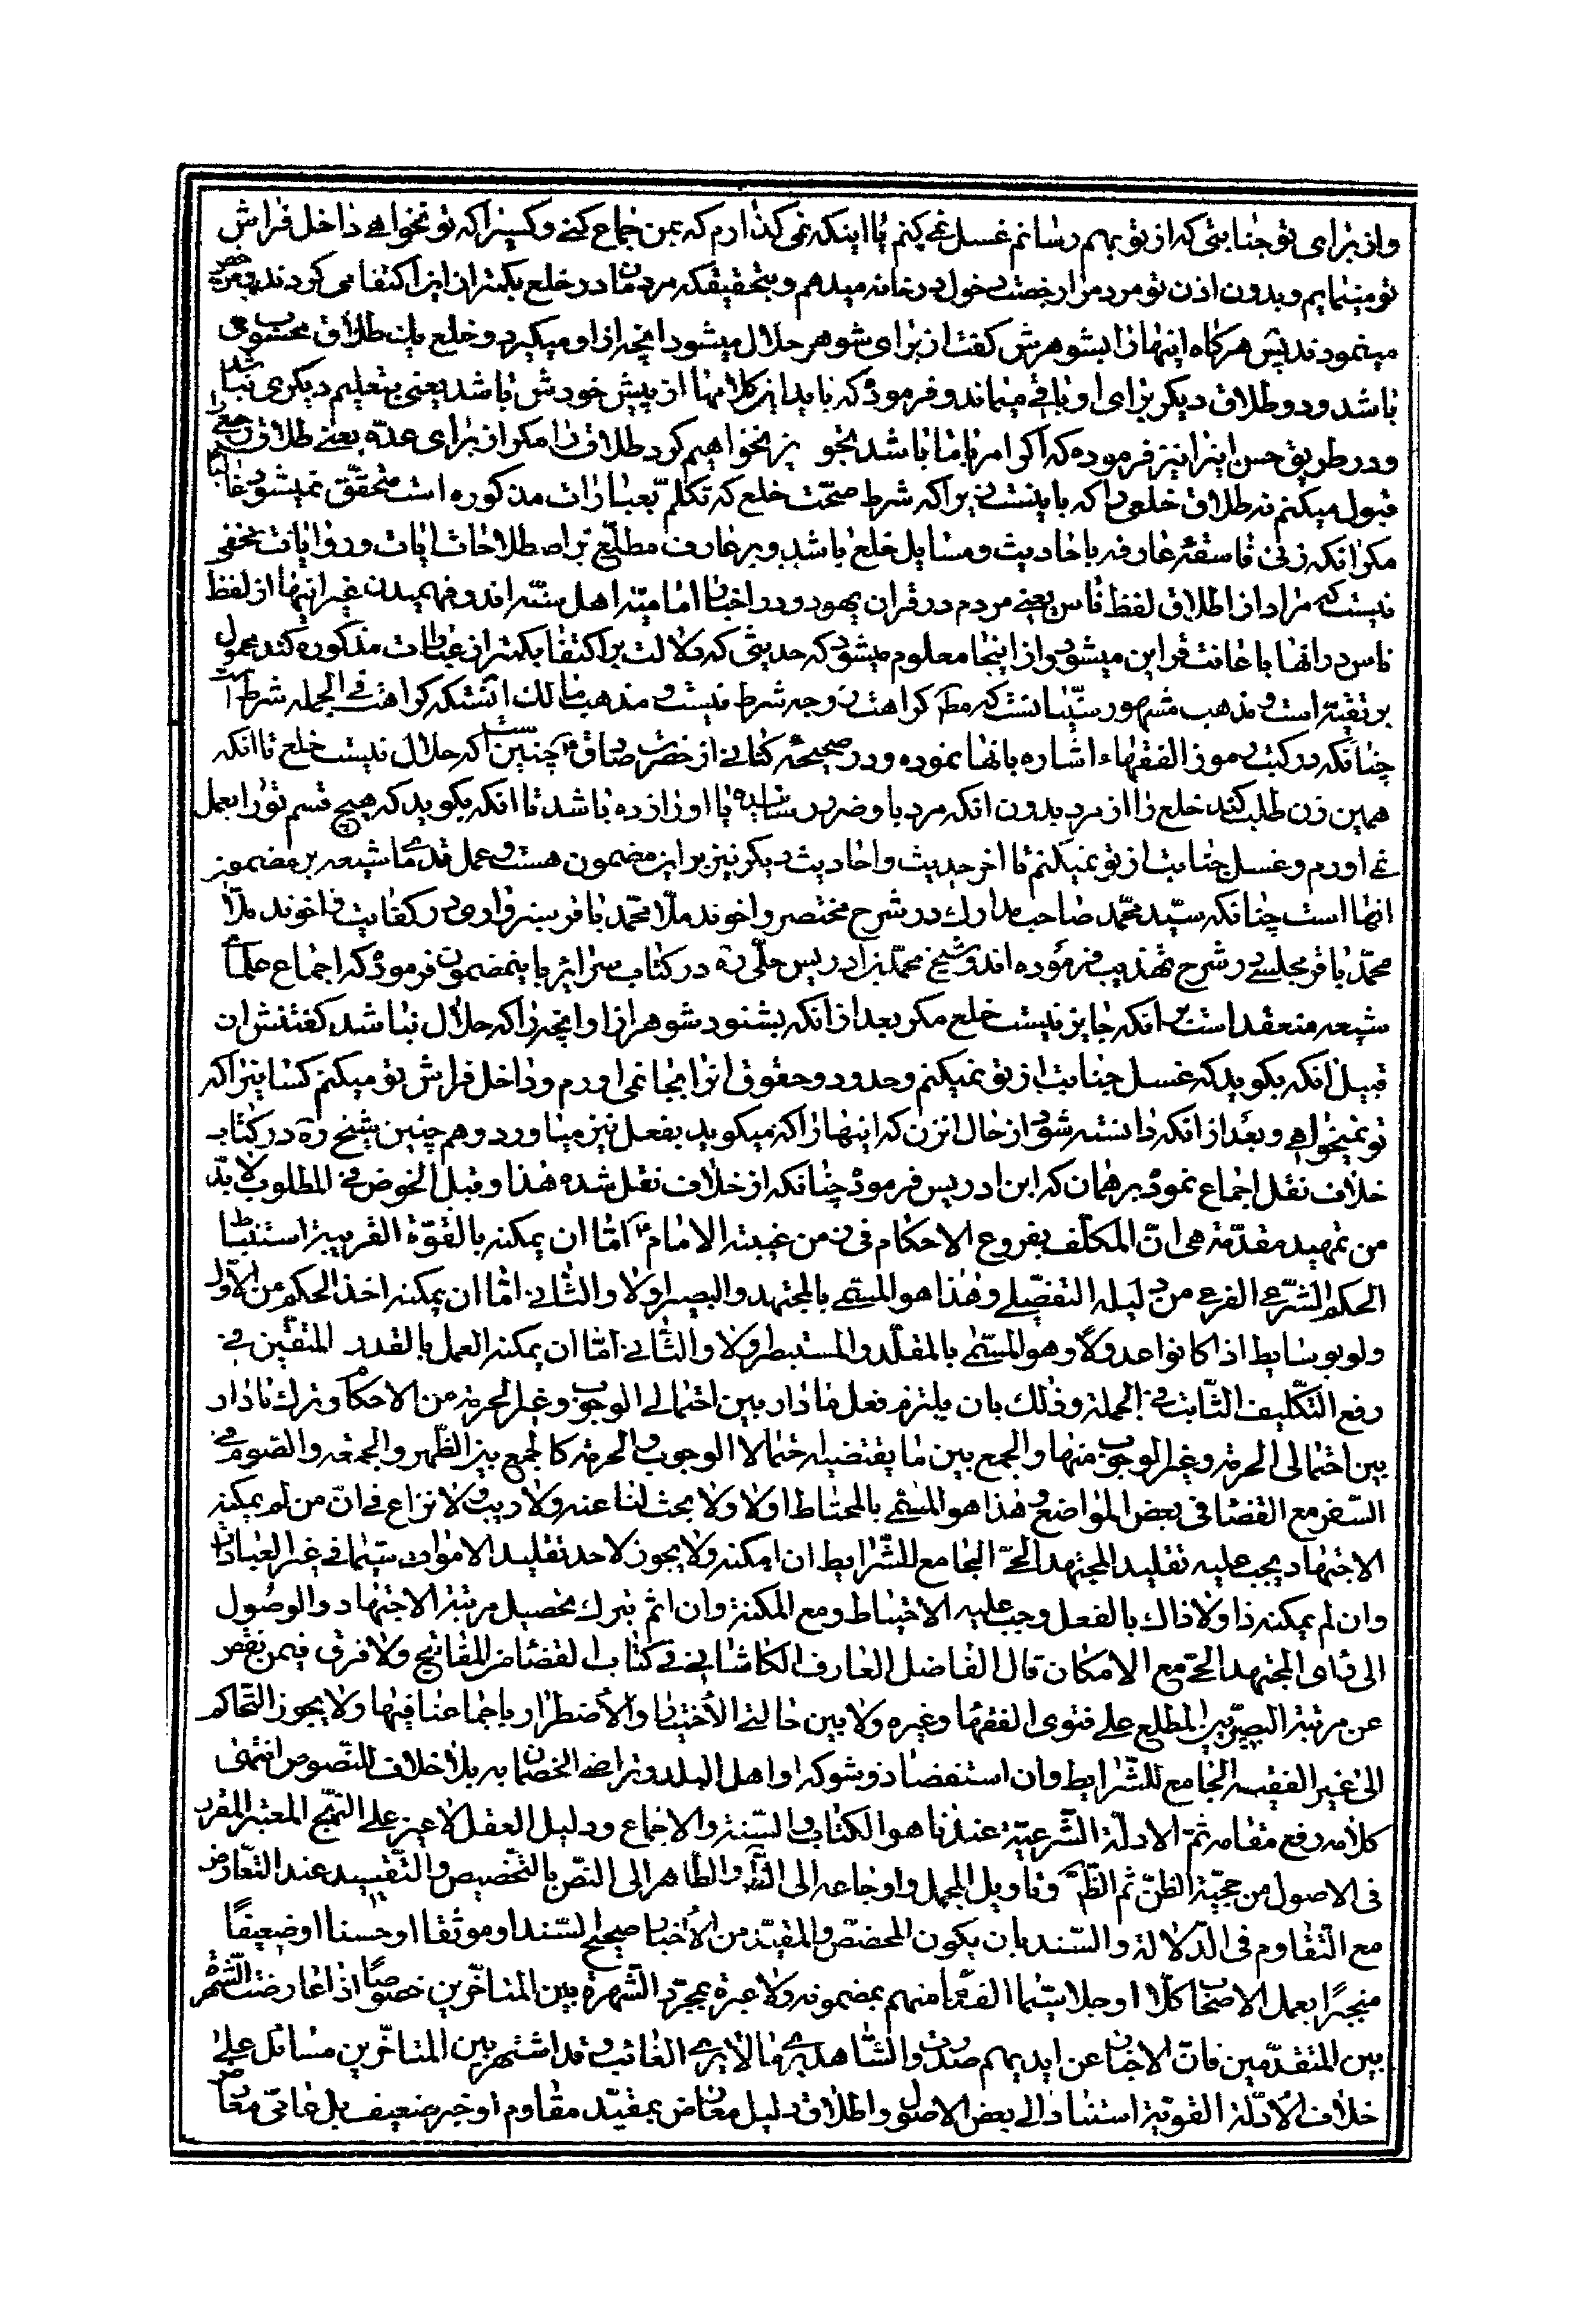 واز برای تو جنابتی که از تو بهم رسانم غسل نمی کنم یا اینکه نمی کذارم که بمن جماع کنی و کسیرا که تو نخواهی داخل فراش
تو مینمایم و بدون اذن تو مردمرا رخصت دخول در خانه میدهم و بتحقیقکه مردمان در خلع بکمتر از این اکتفا می کردند
مینمودند پس هرکاه اینها را بشوهرش کفت از برای شوهر حلال میشود انچه از او میکیرد و خلع یک طلاق محسوب
باشد و دو طلاق دیکر برای او باقی میماند و فرمود که باید این کلامها از پیش خودش باشد یعنی بتعلیم دیکری نباشد
و در طریق حسن اینرا نیز فرموده که اکر امر با ما باشد نخواهیم کرد طلاق را مکر از برای عده یعنی طلاق رجعی را
قبول میکنم نه طلاق خلعی را که باینست زیرا که شرط صحت خلع که تکلم بعبارات مذکوره است متحقق نمیشود غالبا
مکر انکه زنی فاسقه عارفه باحادیث و مسایل خلع باشد و بر عارف مطلع بر اصطلاحات ایات و روایات مخفی
نیست که مراد از اطلاق لفظ ناس یعنی مردم در قران یهود و در اخبار امامیه اهل سنه اند و فهمیدن غیر اینها از لفظ
ناس در انها باعانت قراین میشود و از اینجا معلوم میشود که حدیثی که دلالت بر اکتفا بکمتر از عبارات مذکوره کند محمول
بر تقیه است و مذهب مشهور سنیانست که مطلق کراهت زوجه شرط نیست و مذهب مالک انستکه کراهت فی الجمله شرط است
چنانکه در کتب رموز الفقهاء اشاره بانها نموده و در صحیحه کنانی از حضرت صادق چنین است که حلال نیست خلع تا انکه
همین زن طلب کند خلع را از مرد بدون انکه مرد باو ضرر رسانیده یا او را زده باشد تا انکه بکوید که هیچ قسم تو را بعمل
نمی اورم و غسل جنابت از تو نمیکنم تا اخر حدیث و احادیث دیکر نیز بر این مضمون هست و عمل قدمای شیعه بر مضمون
انها است چنانکه سید محمد صاحب مدارک در شرح مختصر و اخوند ملا محمد باقر سبزواری در کفایت و اخوند ملا
محمد باقر مجلسی در شرح تهذیب فرموده اند و شیخ محمد بن ادریس حلی ره در کتاب سرایر باینمضمون فرمود که اجماع علمای
شیعه منعقد است بر انکه جایز نیست خلع مکر بعد از انکه بشنود شوهر از او انچه را که حلال نباشد کفتنش از
قبیل انکه بکوید که غسل جنابت از تو نمیکنم و حدود و حقوق ترا بجا نمی اورم و داخل فراش تو میکنم کسانیرا که
تو نمیخواهی و بعد از انکه دانسته شود از حال انزن که اینها را که میکوید بفعل نیز میاورد و همچنین شیخ ره در کتاب
خلاف نقل اجماع نمود بر همان که ابن ادریس فرمود چنانکه از خلاف نقل شده هذا و قبل الخوض فی المطلوب لا بد
من تمهید مقدمة هی ان المکلف بفروع الاحکام فی زمن غیبته الامام اما ان یمکنه بالقوة القریبة استنباط
الحکم الشرعی الفرعی من دلیله التفصیلی و هذا هو المسمی بالمجتهد والبصیر اولا والثانی اما ان یمکنه اخذ الحکم من الاول
ولو بوسایط اذا کانوا عدولا و هو المسمی بالمقلد والمستبصر اولا والثانی اما ان یمکنه العمل بالقدر المتقین فی
رفع التکلیف الثابت فی الجملة وذلک بان یلتزم فعل ما دار بین احتمالی الوجوب و غیر الحرمة من الاحکام و ترک ما دار
بین احتمالی الحرمة و غیر الوجوب منها والجمع بین ما یقتضیه احتمالا الوجوب والحرمة کالجمع بین الظهر والجمعه والصوم فی
السفر مع القضا فی بعض المواضع و هذا هو المسمی بالمحتاط اولا ولا بحث لنا عنه ولا ریب ولا نزاع فی ان من لم یمکنه
الاجتهاد یجب علیه تقلید المجتهد الحی الجامع للشرایط ان امکنه ولا یجوز لاحد تقلید الاموات سیما فی غیر العبادات
وان لم یمکنه ذا ولا ذاک بالفعل وجب علیه الاحتیاط و مع المکنة وان اثم بترک تحصیل مرتبة الاجتهاد والوصول
الی رای المجتهد الحی مع الامکان قال الفاضل العارف الکاشانی فی کتاب القضا من المفاتیح ولا فرق فیمن نقص
عن مرتبة البصیر بین المطلع علی فتوی الفقها و غیره ولا بین حالتی الاختیار والاضطرار باجماعنا فیها ولا یجوز التحاکم
الی غیر الفقیه الجامع للشرایط وان استقضاه ذو شوکه او اهل البلد و تراضی الخصمان به بلا خلاف للنصوص انتهی
کلامه رفع مقامه ثم الادلة الشرعیة عندنا هو الکتاب والسنة والاجماع و دلیل العقل لا غیر علی النهج المعتبر المقرر
فی الاصول من حجیة الظن ثم الظن و تاویل المجمل و اوجاعه الی والظاهر الی النص بالتخصیص والتقیید عند التعارض
مع التقاوم فی الدلالة والسند بان یکون المخصص والمقید من الاخبار صحیح السند او موثقا او حسنا او ضعیفا
منجبرا بعمل الاصحاب کلا او جلا سیما القدماء منهم بمضمونه ولا عبرة بمجرد الشهرة بین المتاخرین خصوصا اذا عارضت الشهرة
بین المتقدمین فان الاخبار عن ایدیهم صدرت والشاهد یری ما لا یری الغائب و قد اشتهر بین المتاخرین مسائل علی
خلاف الادلة القویة استنادا الی بعض الاصول و اطلاق دلیل معارض بمقید مقاوم او خبر ضعیف بل عامی معارض